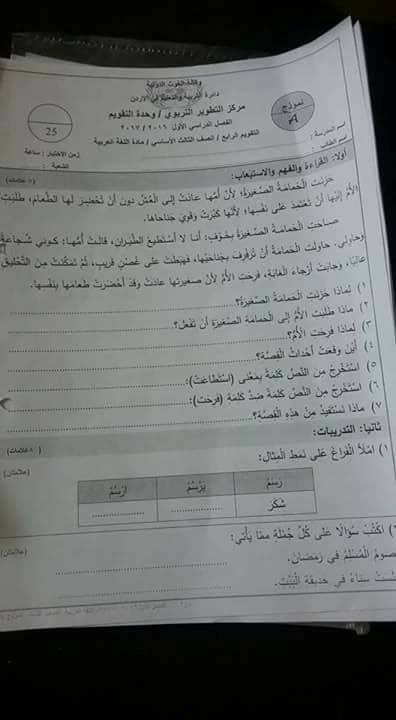 وكالة الغوث الدولية
دائرة التربية والتعليم في الأردن
مركز التطوير التربوي / وحدة التقويم
الفصل الدراسي الأول ٢٠١٦ / ٢٠١٧
التقويم الرابع / الصف الثالث الأساسي / مادة اللغة العربية
نموذج
A
25
اسم المدرسة :
اسم الطالب :
زمن الاختبار : ساعة
الشعبة :
أولا: القراءة والفهم والاستيعاب:
حزنت الحمامة الصغيرة؛ لأن أمها عادت إلى العش دون أن تحضر لها الطعام، طلبت
الأم إليها أن تعتمد على نفسها؛ لأنها كبرت وقوي جناحاها.
صاحت الحمامة الصغيرة بخوف: أنا لا أستطيع الطيران، قالت أمها: كوني شجاعة
وحاولي. حاولت الحمامة أن ترفرف بجناحيها، فهبطت على غصن قريب، ثم تمكنت من التحليق
عاليا، وجابت أرجاء الغابة، فرحت الأم لأن صغيرتها عادت وقد أحضرت طعامها بنفسها.
١) لماذا حزنت الحمامة الصغيرة؟
٢) ماذا طلبت الأم إلى الحمامة الصغيرة أن تفعل؟
٣) لماذا فرحت الأم؟
٤) أين وقعت أحداث القصة؟
٥) استخرج من النص كلمة بمعنى (استطاعت):
٦) استخرج من النص كلمة ضد كلمة (فرحت):
٧) ماذا تستفيد من هذه القصة؟
ثانيا: التدريبات:
١) املأ الفراغ على نمط المثال:
(علامتان)
رسم يرسم ارسم
شكر
٢) اكتب سؤالا على كل جملة مما يأتي:
(علامتان)
يصوم المسلم في رمضان.
سناء في حديقة البيت.